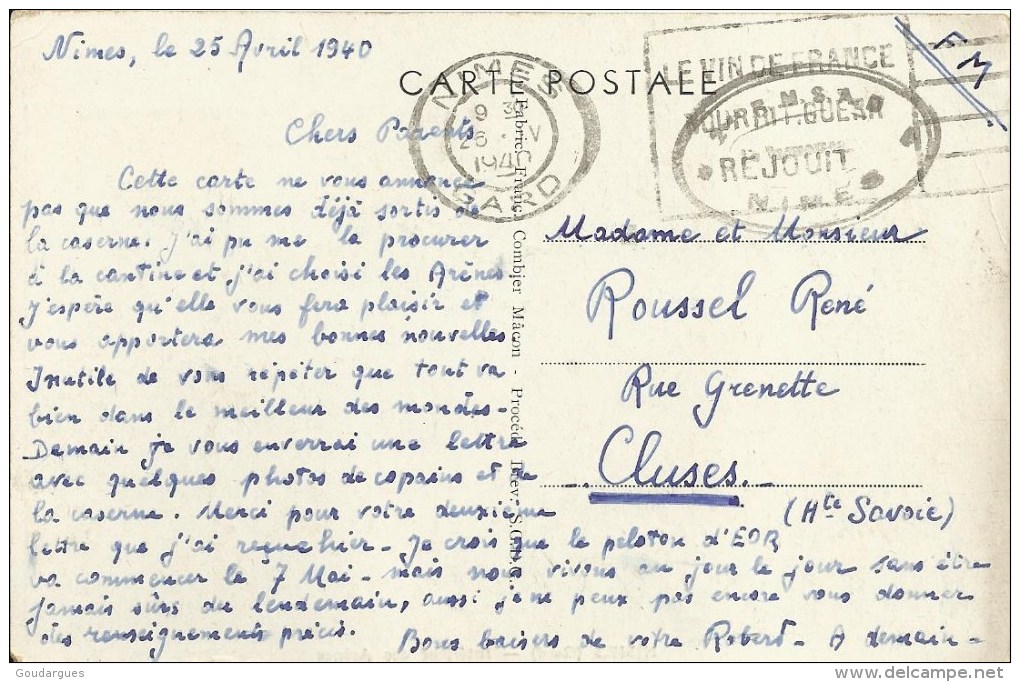 Nimes, le 25 Avril 1940
CARTE POSTALE
F M
NIMES
9 3
26 IV
1940
GARD
LE VIN DE FRANCE
NOURRIT.GUERIR
REJOUIT
Chers Parents
Cette carte ne vous annonce
pas que nous sommes déjà sortis de
la caserne. J'ai pu me la procurer
à la cantine et j'ai choisi les Arènes
J'espère qu'elle vous fera plaisir et
vous apportera mes bonnes nouvelles
Inutile de vous répéter que tout va
bien dans le meilleur des mondes-
Demain je vous enverrai une lettre
avec quelques photos de copains et de
la caserne. Merci pour votre deuxième
lettre que j'ai reçue hier- Je crois que le peloton d'EOR
va commencer le 7 Mai- mais nous vivons au jour le jour sans être
jamais sûrs du lendemain, aussi je ne peux pas encore vous donner
des renseignements précis.
Bons baisers de votre Robert- A demain-
Fabric. Franç. Combier Mâcon - Procédé
S.G.D.G.
Madame et Monsieur
Roussel René
Rue Grenette
Cluses.
(Hte Savoie)
Goudargues
delcampe.net